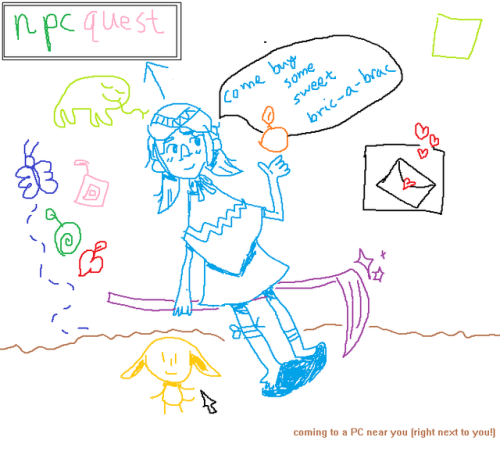 npc quest
come buy
some
sweet
bric-a-brac
coming to a PC near you (right next to you!)